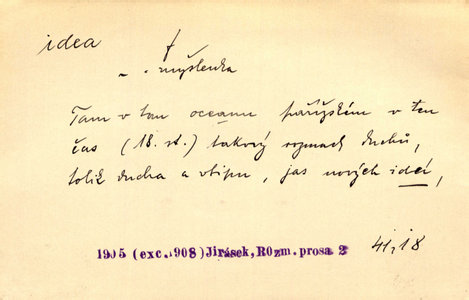 idea †
„ . myšlenka
Tam v tom oceanu pařížském v ten
čas (18. st.) takový rozmach duchů,
tolik ducha a vtipu, jas nových ideí,
1905 (exc.1908) Jirásek, R0zm. prosa 2 41,18